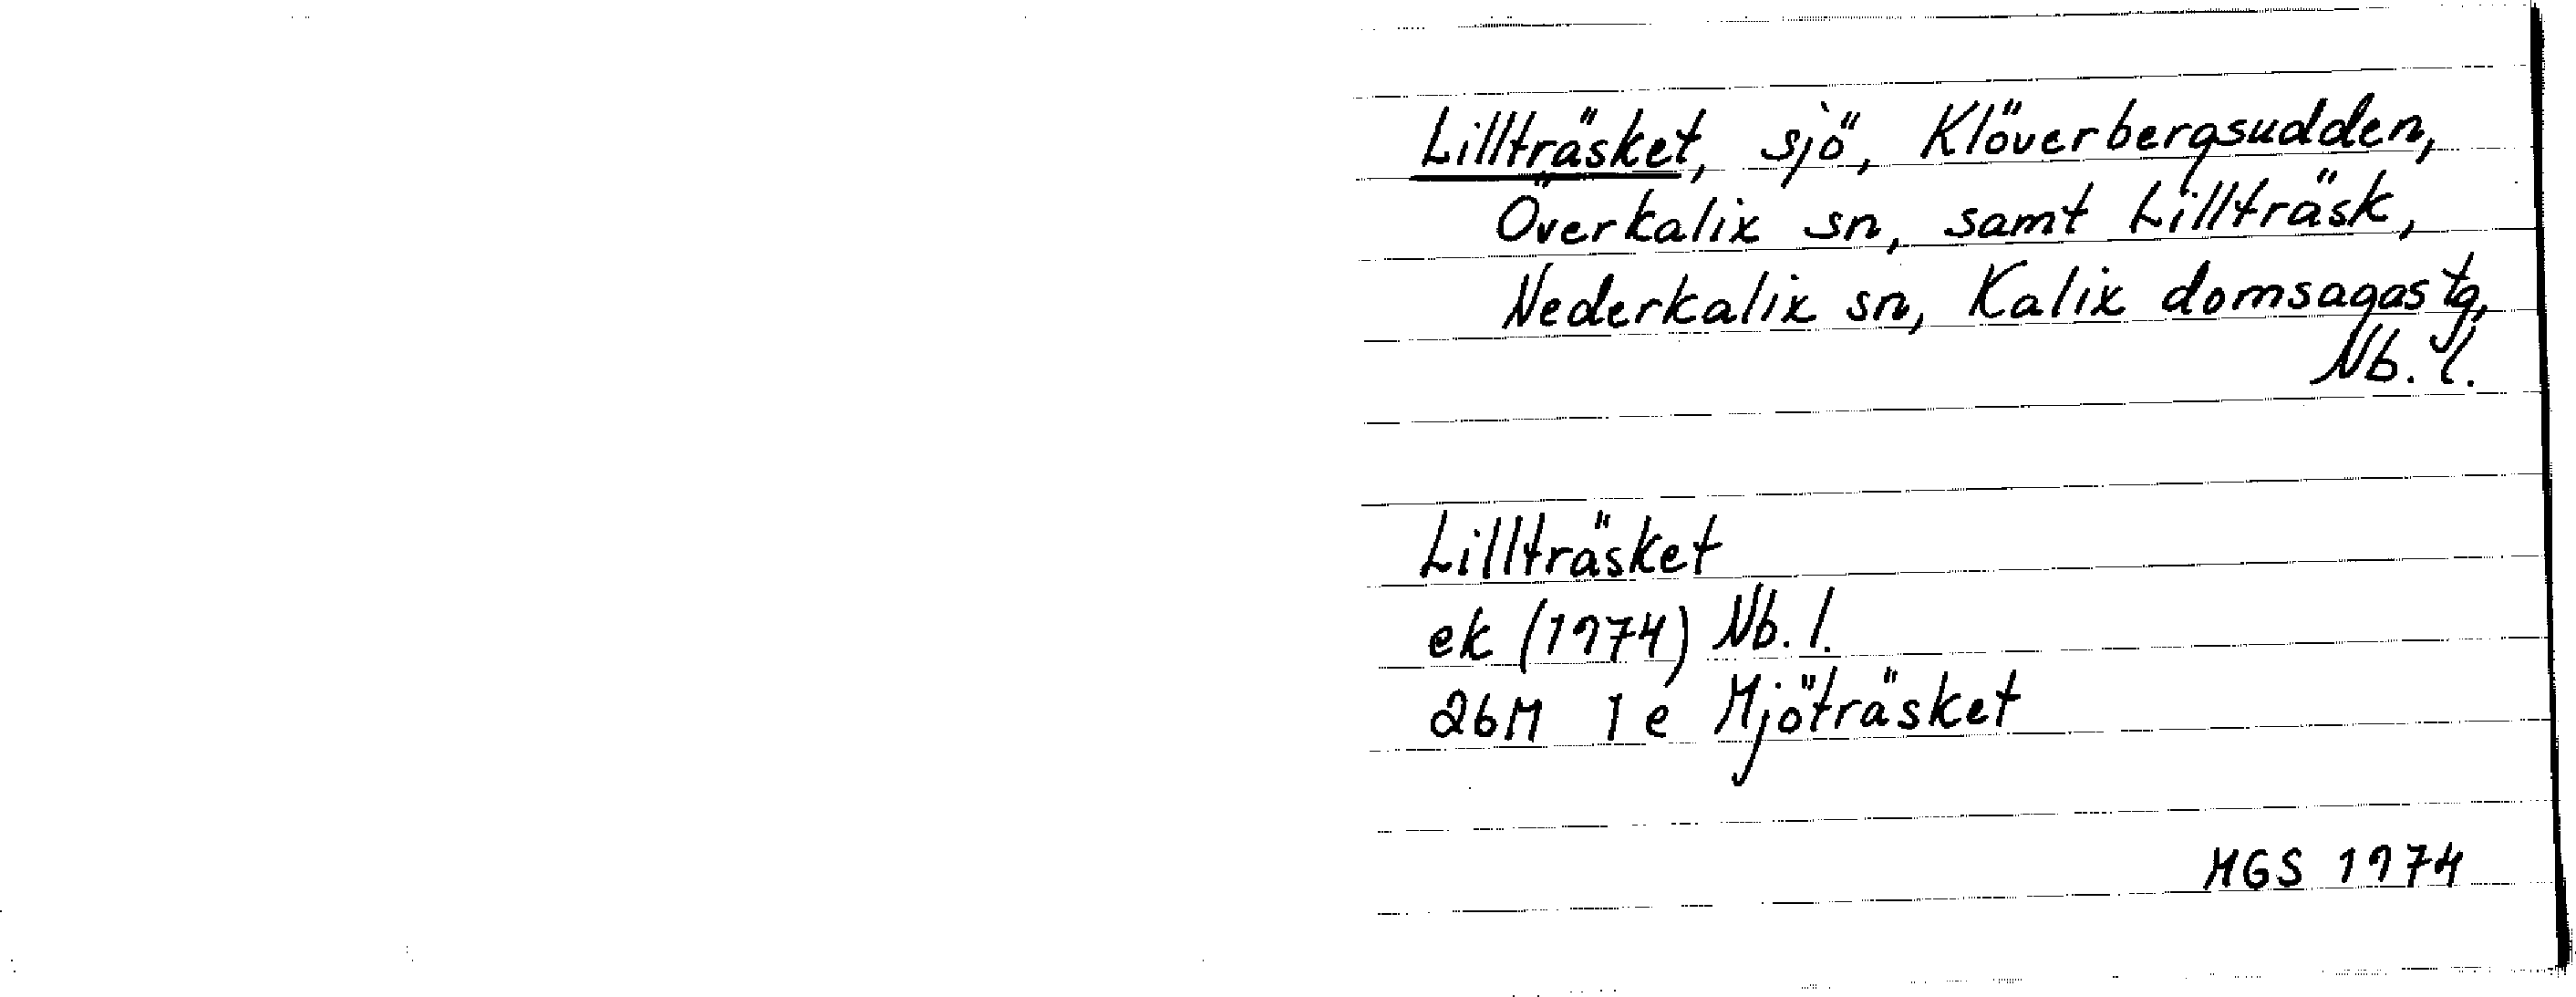 Lillträsket, sjö, Klöverbergsudden,
Överkalix sn, samt Lillträsk,
Nederkalix sn, Kalix domsagas tg,
Nb. l.
Lillträsket
ek (1974) Nb. l.
26M 1 e Mjöträsket
MGS 1974